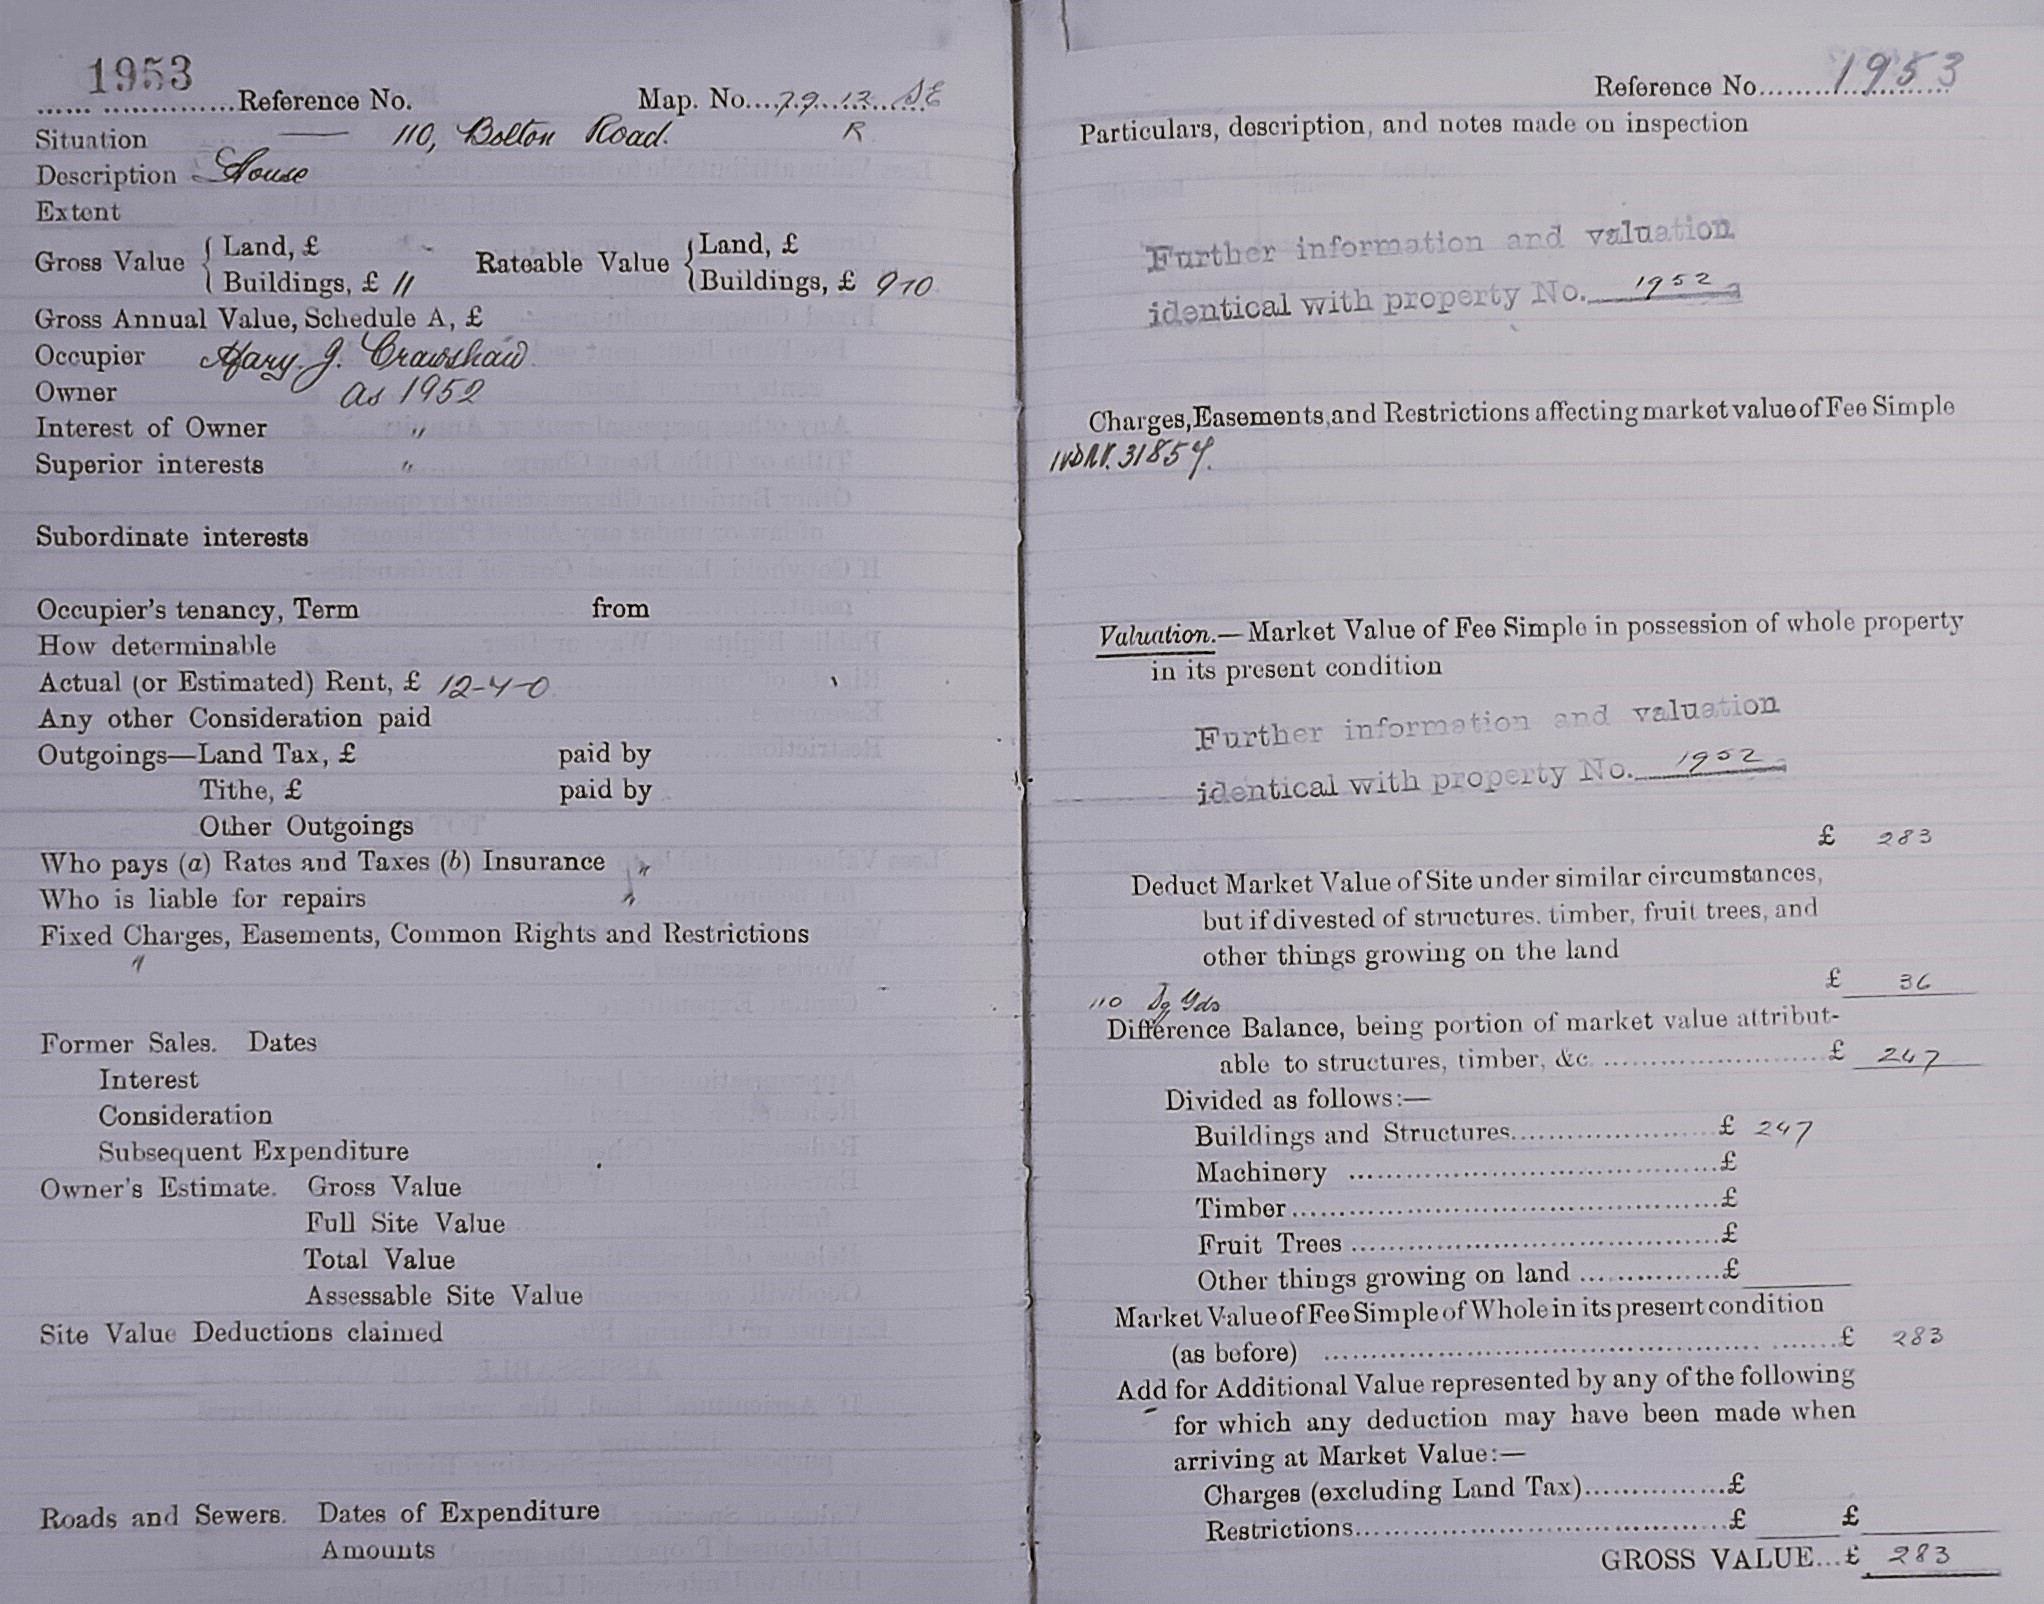 1953
...... ..............Reference No. Map. No....79...13...SE
Situation — 110, Bolton Road. R.
Description House
Extent
Gross Value { Land, £ Rateable Value { Land, £
Buildings, £ 11 Buildings, £ 9 10
Gross Annual Value, Schedule A, £
Occupier Mary. J. Crawshaw
Owner as 1952
Interest of Owner "
Superior interests "
Subordinate interests
Occupier's tenancy, Term from
How determinable
Actual (or Estimated) Rent, £ 12-4-0
Any other Consideration paid
Outgoings—Land Tax, £ paid by
Tithe, £ paid by
Other Outgoings
Who pays (a) Rates and Taxes (b) Insurance "
Who is liable for repairs "
Fixed Charges, Easements, Common Rights and Restrictions
"
Former Sales. Dates
Interest
Consideration
Subsequent Expenditure
Owner's Estimate. Gross Value
Full Site Value
Total Value
Assessable Site Value
Site Value Deductions claimed
Roads and Sewers. Dates of Expenditure
Amounts
Reference No. 1953
Particulars, description, and notes made on inspection
Further information and valuation
identical with property No. 1952
Charges, Easements, and Restrictions affecting market value of Fee Simple
31854.
Valuation.—Market Value of Fee Simple in possession of whole property
in its present condition
Further information and valuation
identical with property No. 1952
£ 283
Deduct Market Value of Site under similar circumstances,
but if divested of structures. timber, fruit trees, and
other things growing on the land
£ 36
110 Sq Yds
Difference Balance, being portion of market value attribut-
able to structures, timber, &c. ........................£ 247
Divided as follows:—
Buildings and Structures........................£ 247
Machinery ........................£
Timber........................£
Fruit Trees ........................£
Other things growing on land ................£
Market Value of Fee Simple of Whole in its present condition
(as before) ........................£ 283
Add for Additional Value represented by any of the following
for which any deduction may have been made when
arriving at Market Value:—
Charges (excluding Land Tax)................£
Restrictions........................£ £
GROSS VALUE...£ 283